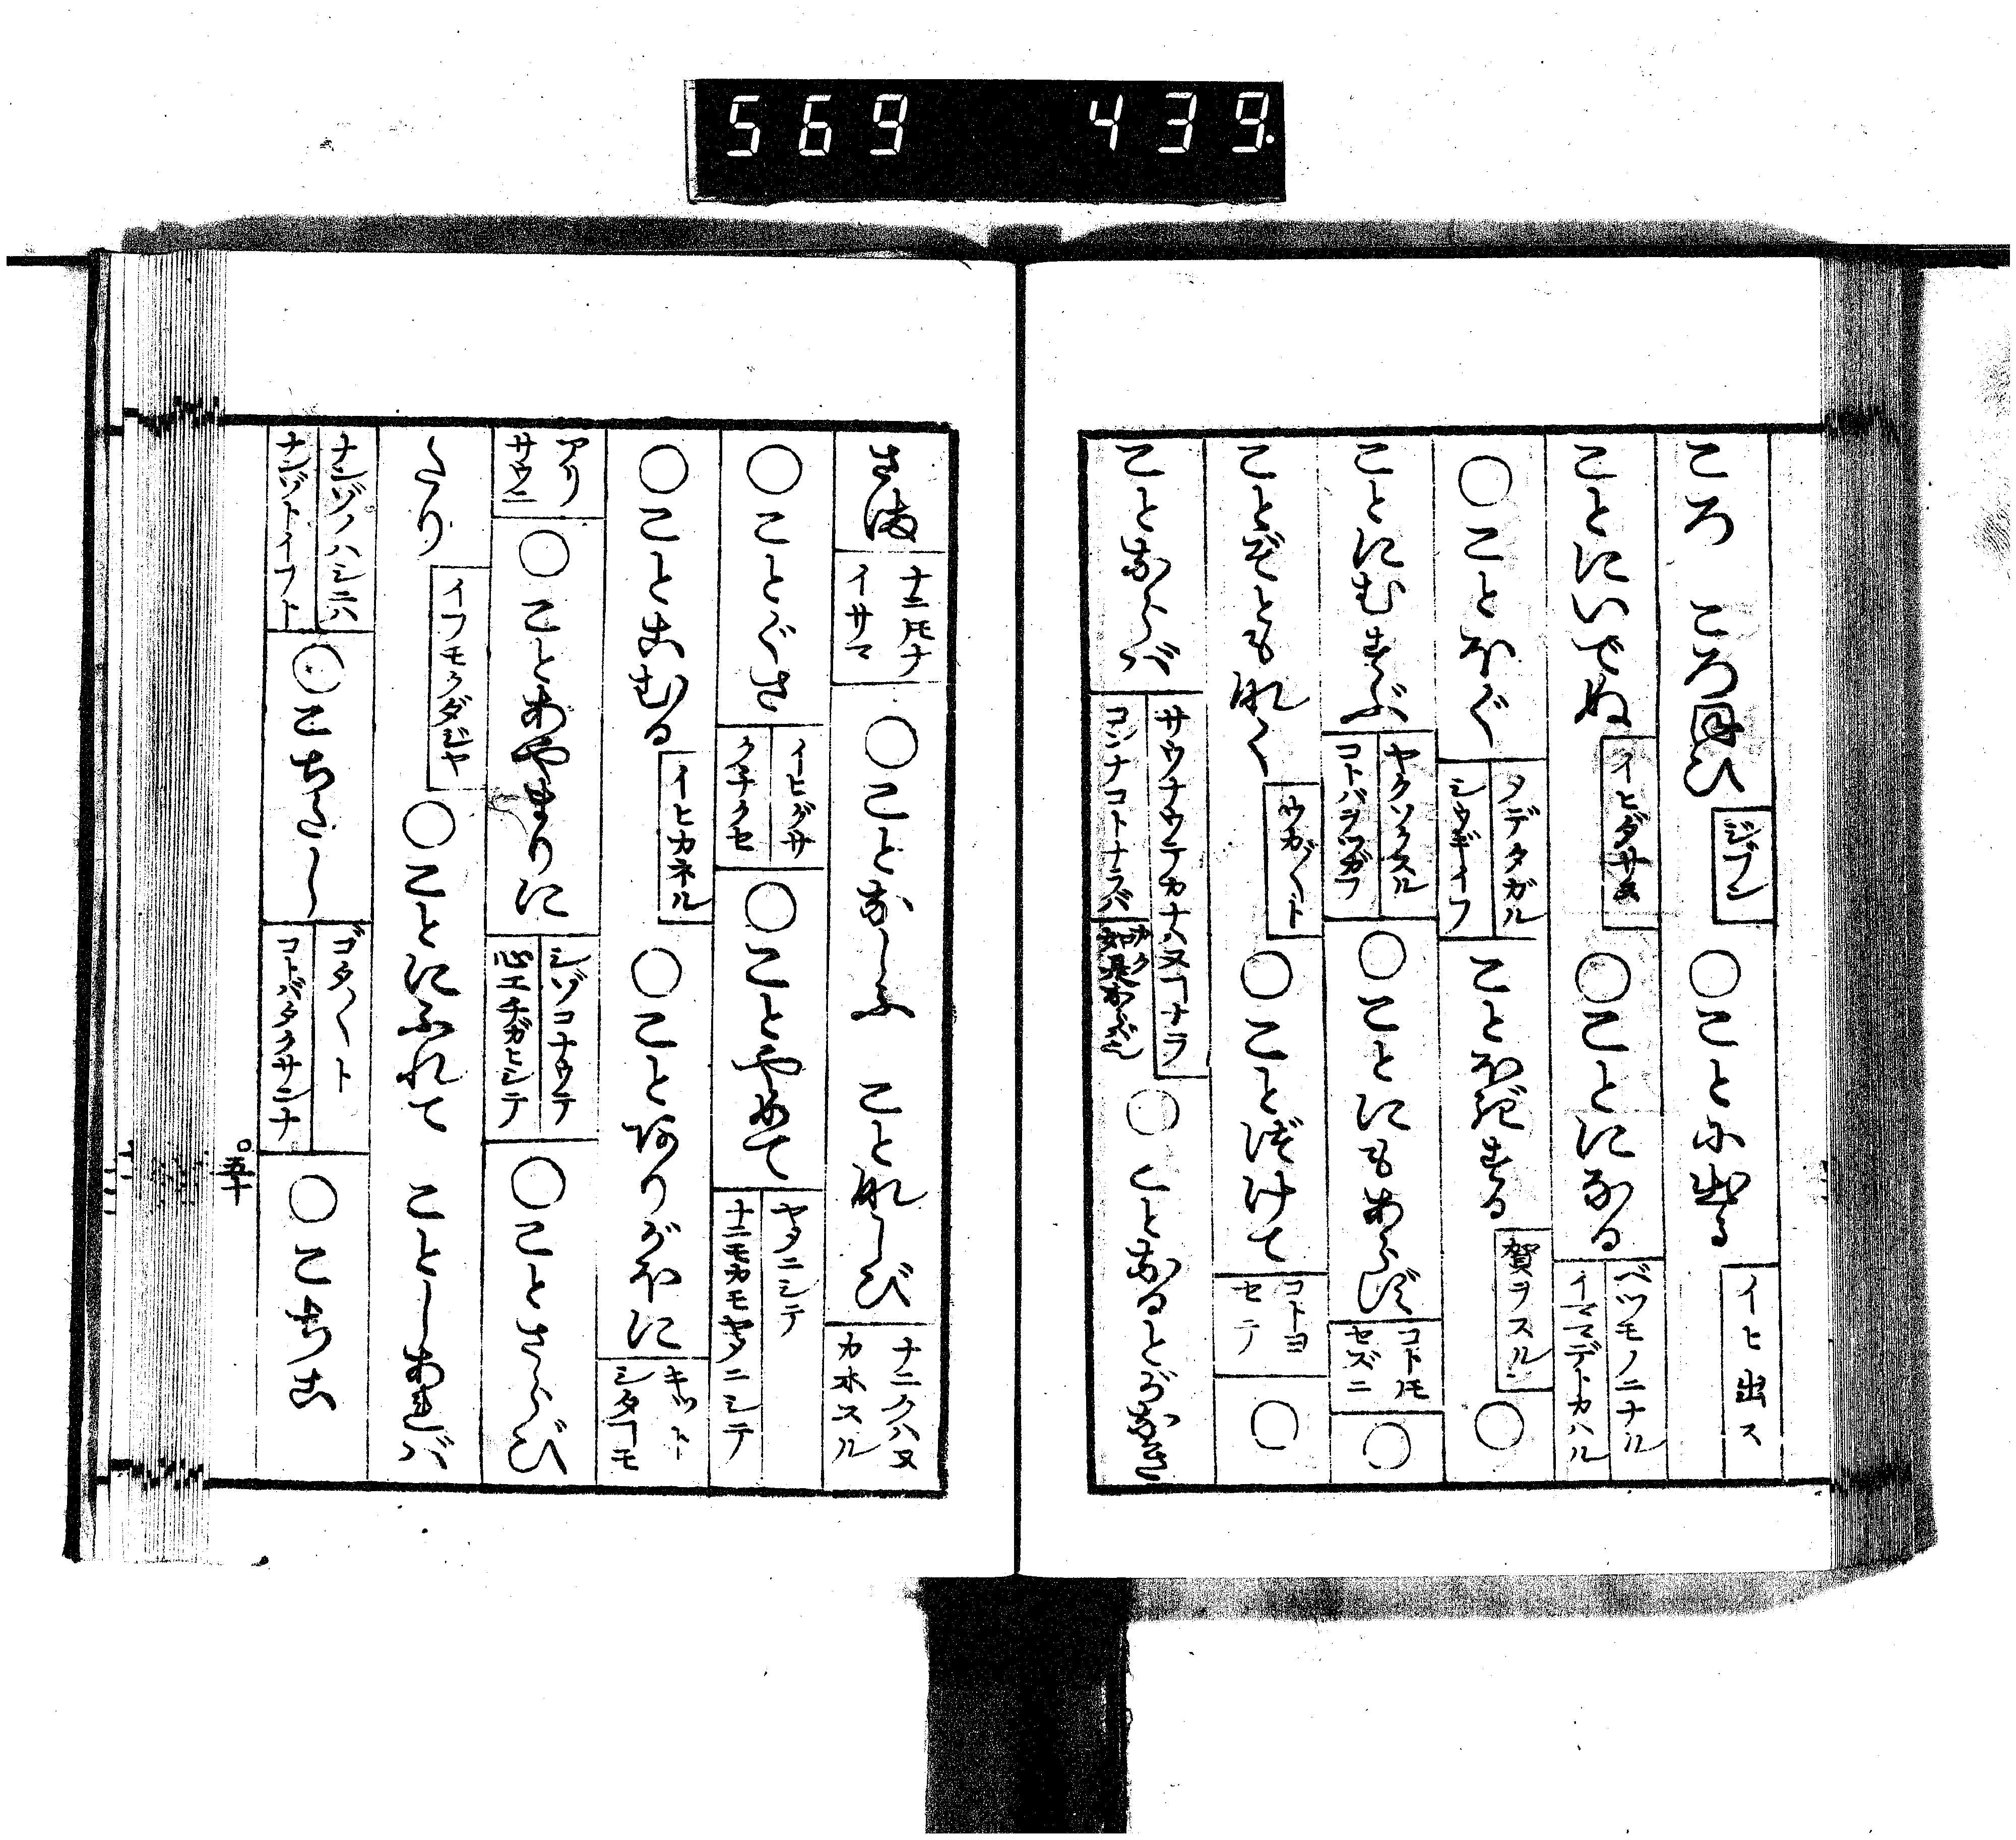 569 439.
ころ ころほひ ジブン ○ことに出る イヒ出ス
ことにいでぬ イヒダサヌ ○ことになる ベツモノニナル イママデトカハル
○ことほぐ タデタガル シウギイフ ことほぎする 賀ヲスル ○
ことにむすぶ ヤクソクスル コトバヲツガフ ○ことにもあらず コトトモ セズニ ○
ことぞともなく ウカ〳〵ト ○ことづけて コトヨ セテ ○
ことならば サウナウテカナハヌコトナラ コンナコトナラバ ○ことなるとがなき
さま ナニトモナ イサマ ○ことなしふ ことなしび ナニクハヌ カホスル
○ことぐさ イヒグサ クチクセ ○ことやめて ヤメニシテ ナニモカモヤメニシテ
○ことこむる イヒカネル ○ことありがほに キツト シタコトモ
アリ サウニ ○ことあやまりに シゾコナウテ 心エチガヒシテ ○ことさらび
たり イフモクダジヤ ○ことにふれて ことしあれバ
ナンゾノハシニハ ナンゾトイフト ○こちたし ゴタ〳〵ト コトバタクサンナ ○こちこ
○五十